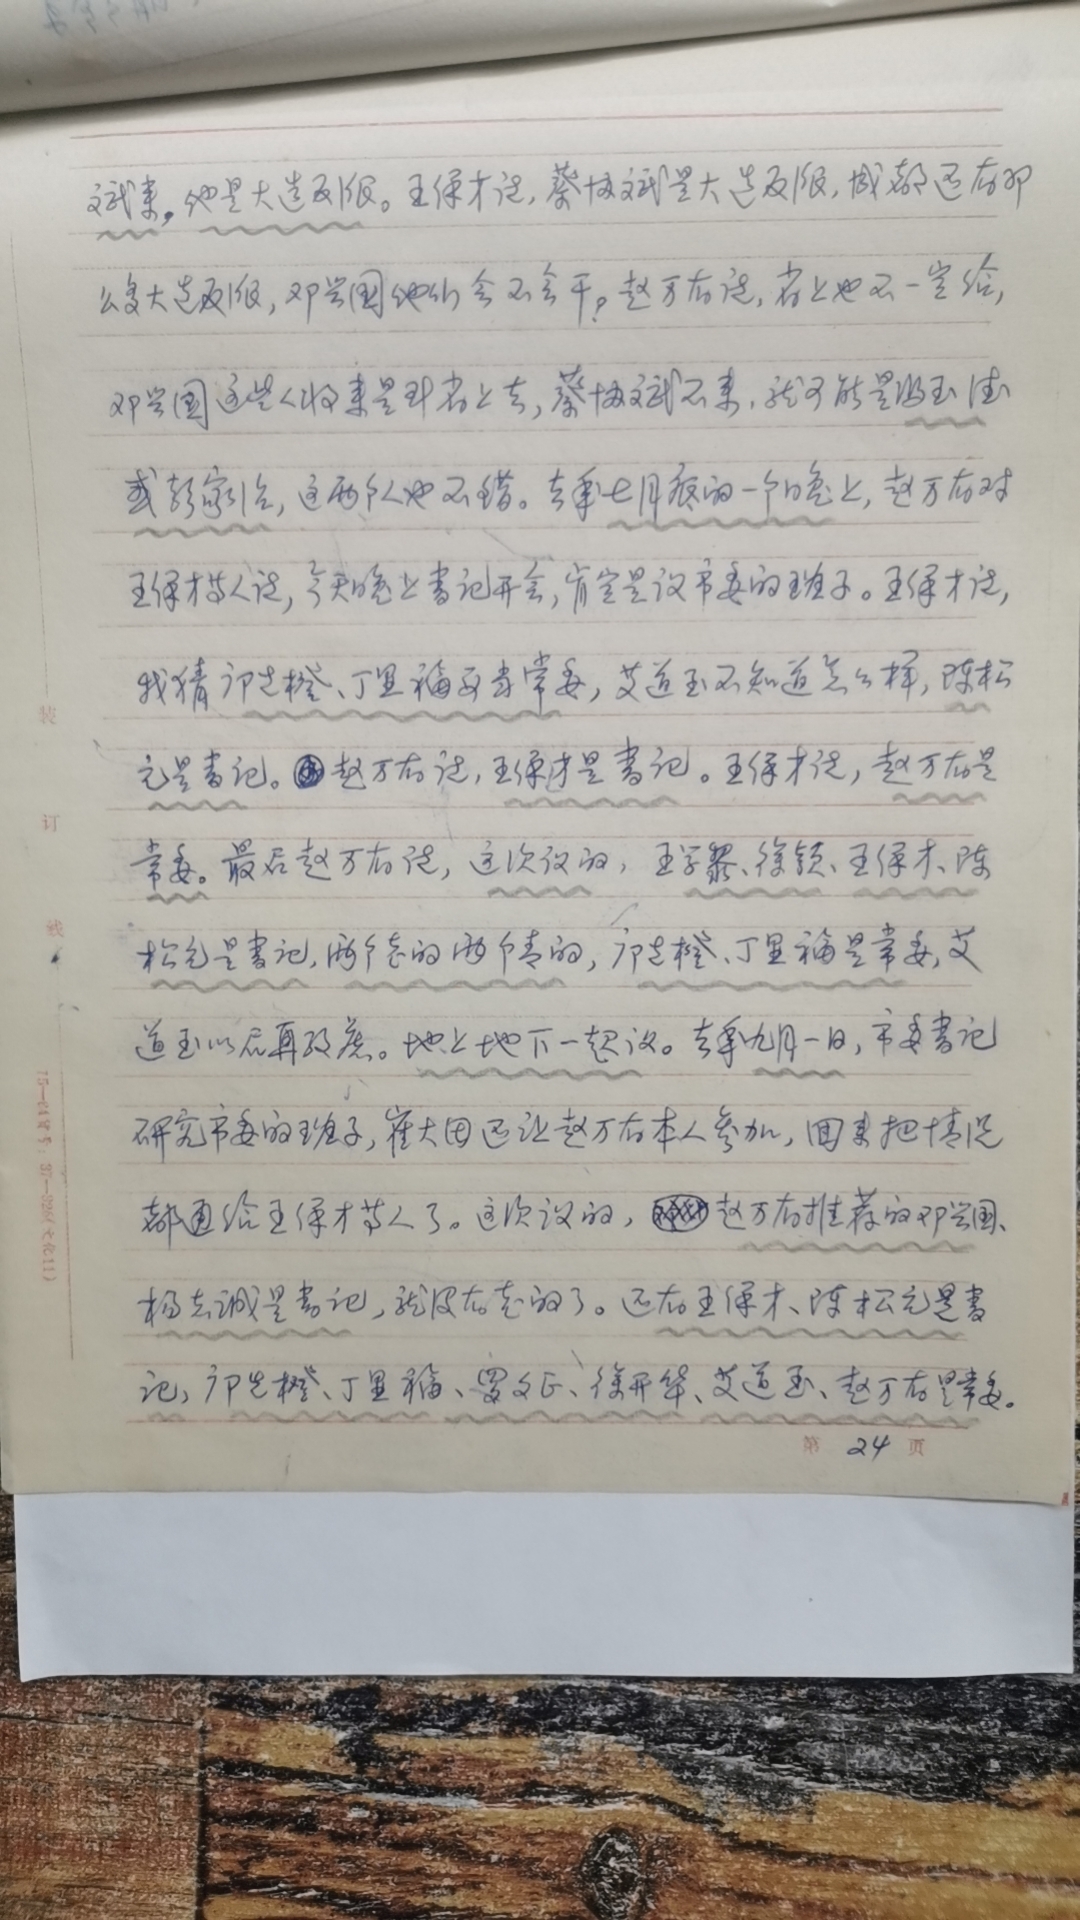 文斌来，他是大造反派。王保才说，蔡文斌是大造反派，成都还有那
么多大造反派，邓兴国他们会不会干？赵万有说，省上也不一定给，
邓兴国这些人将来是到省上去，蔡文斌不来，就可能是冯玉德
或彭家治，这两个人也不错。去年七月底的一个晚上，赵万有对
王保才等人说，今天晚上书记开会，肯定是议市委的班子。王保才说，
我猜邝先橙、丁里福要当常委，艾道玉不知道怎么样，陈松
元是书记。赵万有说，王保才是书记。王保才说，赵万有是
常委。最后赵万有说，这次议的，王学、徐颖、王保才、陈
松元是书记，两个老的两个青的，邝先橙、丁里福是常委，艾
道玉以后再考虑。地上地下一起议。去年九月一日，市委书记
研究市委的班子，崔大田还让赵万有本人参加，回来把情况
都通给王保才等人了。这次议的，赵万有推荐的邓兴国、
杨志诚是书记，就没有老的了。还有王保才、陈松元是书
记，邝先橙、丁里福、罗文正、徐开华、艾道玉、赵万有是常委。
第 24 页
装
订
线